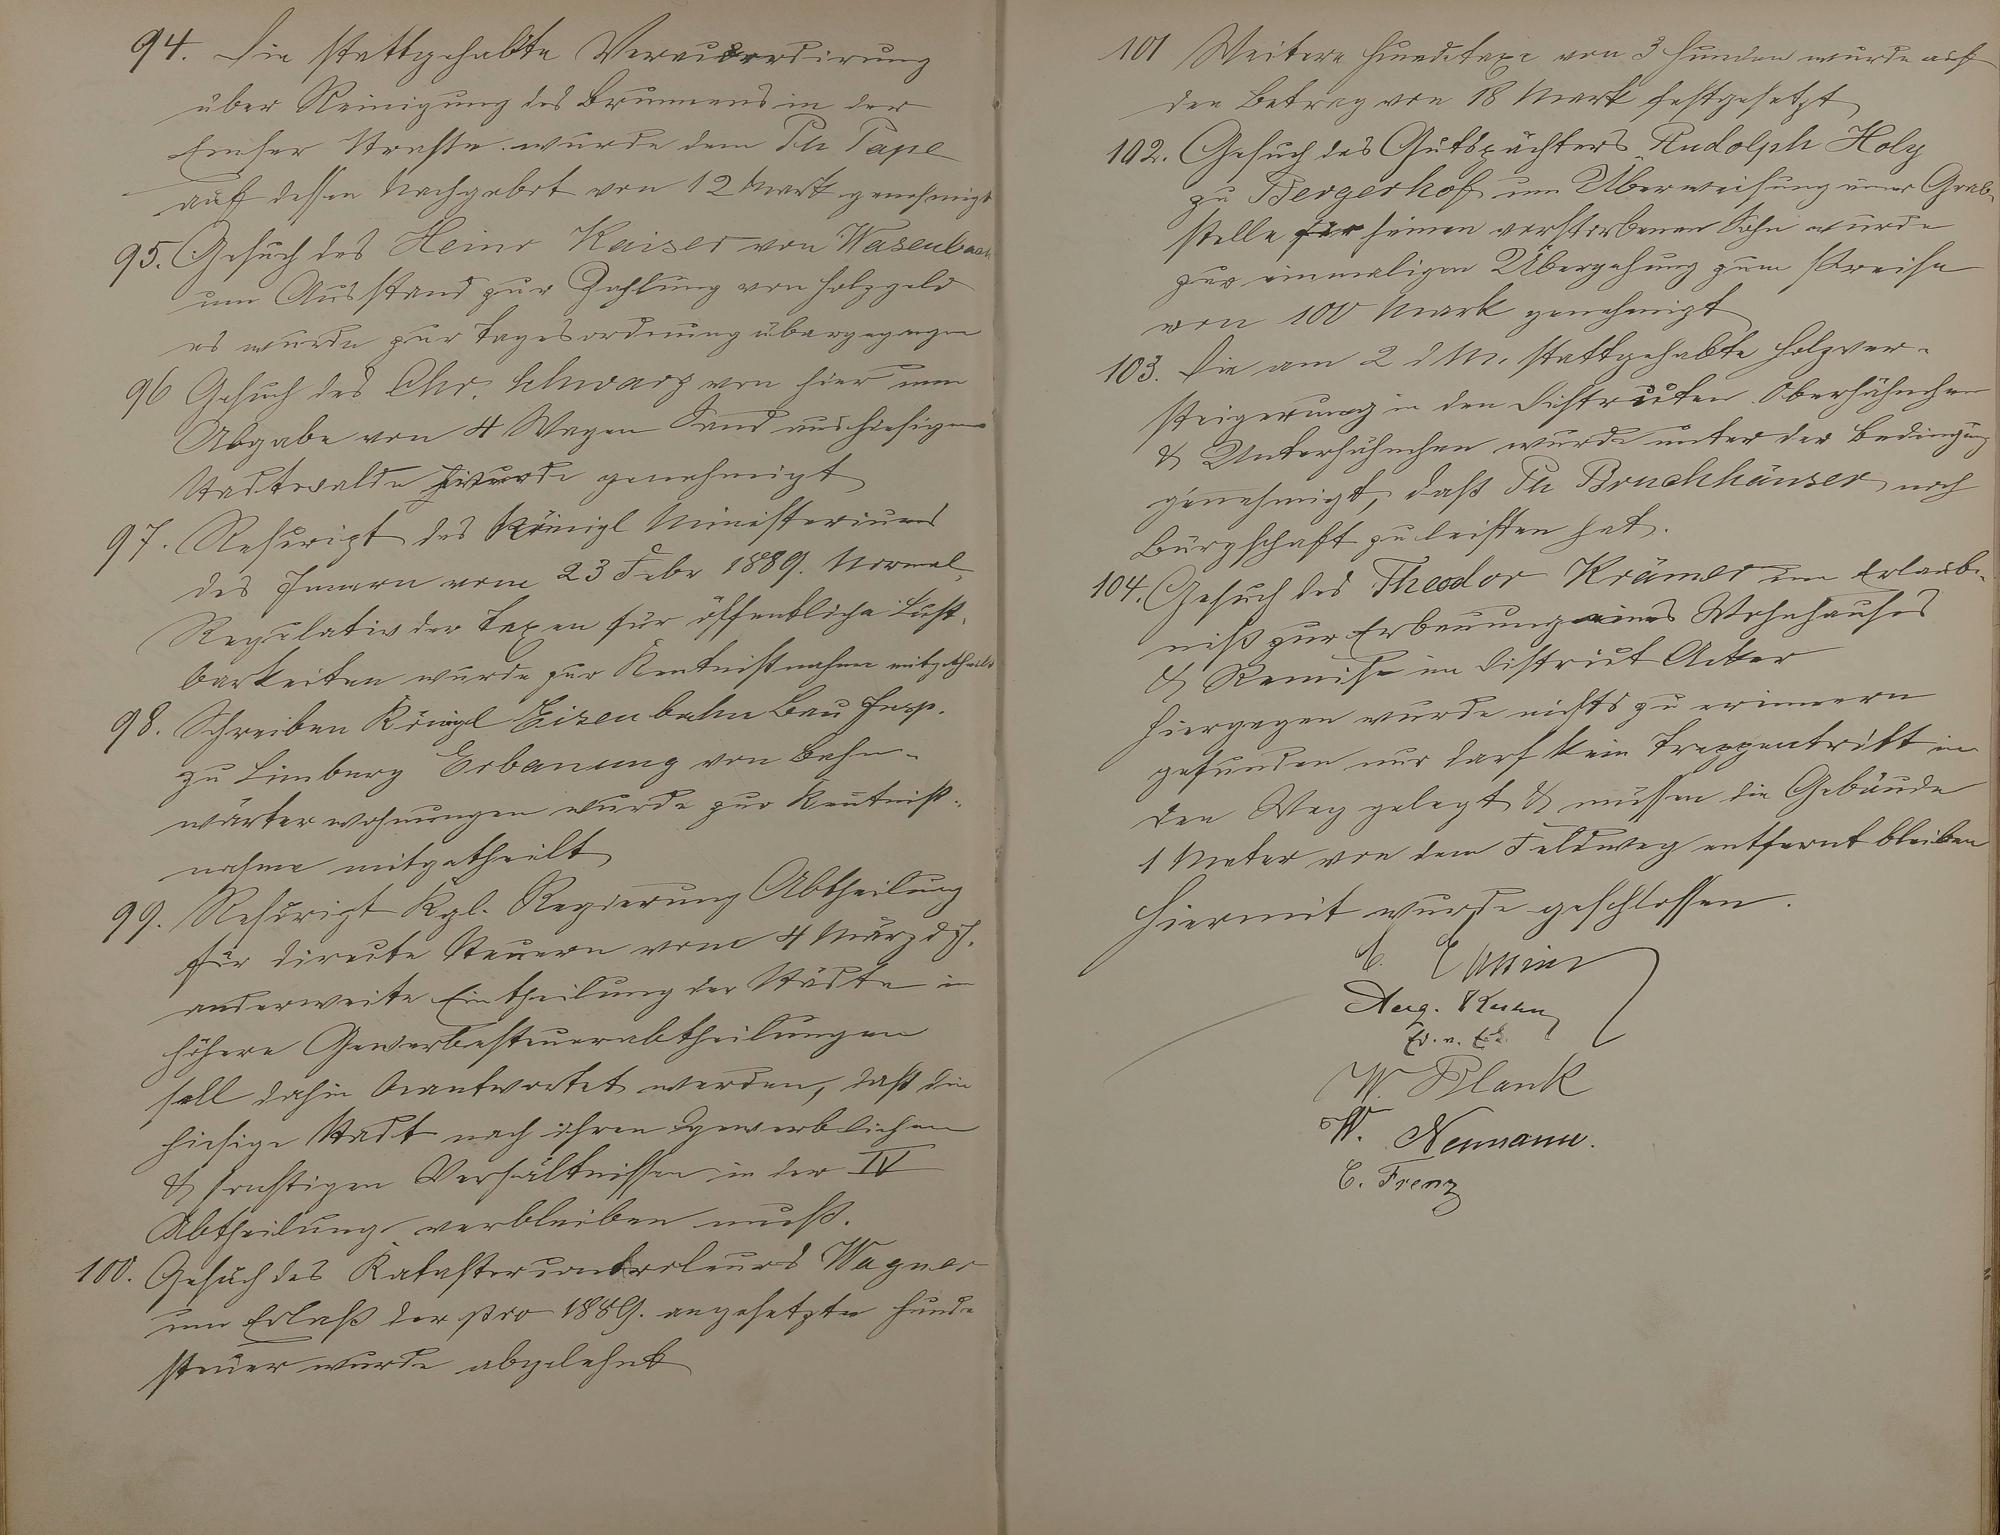 94. Die stattgehabte Veraccordirung
über Reinigung des Brunnens in der
Emser Straße wurde dem Ph Pape
auf dessen Nachgebot von 12 Mark genehmigt
95. Gesuch des Heinr Kaiser von Wasenbach
um Ausstand zur Zahlung von Holzgeld
es wurde zur Tagesordnung übergegangen
96 Gesuch des Chr. Schwarz von hier um
Abgabe von 4 Wagen Sand aus hiesigem
Stadtwalde wurde genehmigt
97. Rescript des Königl Ministeriums
des Innern vom 23 Febr 1889. Normal-
Regulativ der Taxen für öffentliche Lust-
barkeiten wurde zur Kentnißnahme mitgetheilt
98. Schreiben Königl Eisenbahn Bau Insp.
zu Limburg Erbauung von Bahn-
wärterwohnungen wurde zur Kentniß-
nahme mitgetheilt
99. Rescript Kgl. Regierung Abtheilung
für directe Steuern vom 4 März d J.
anderweite Eintheilung der Städte in
höhere Gewerbesteuerabtheilungen
soll dahin beantwortet werden, daß die
hiesige Stadt nach ihren gewerblichen
& sonstigen Verhältnissen in der IV
Abtheilung verbleiben muß.
100. Gesuch des Katastercontroleurs Wagner
um Erlaß der pro 1889. angesetzten Hunde
steuer wurde abgelehnt
101 Weitere Hundetaxe von 3 Hunden wurde auf
den Betrag von 18 Mark festgesetzt
102. Gesuch des Gutspächters Rudolph Holy
zu Bergerhof um Überweisung einer Grab-
stelle für seinen verstorbenen Sohn wurde
zur einmaligen Übergehung zum Preise
von 100 Mark genehmigt
103. Die am 2 d M. stattgehabte Holzver-
steigerung in den Districten Oberhähnchen
& Unterhähnchen wurde unter der Bedingung
genehmigt, daß Ph Bruchhäuser noch
Bürgschaft zu leisten hat.
104. Gesuch des Theodor Krämer um Erlaub-
niß zur Erbauung eines Wohnhauses
& Remise im District Acker
hiergegen wurde nichts zu erinnern
gefunden nur darf kein Treppentritt in
den Weg gelegt & müssen die Gebäude
1 Meter von dem Feldweg entfernt bleiben
Hiermit wurde geschlossen.
Aug.
W. Blank
W. Neumann.
C. Frenz